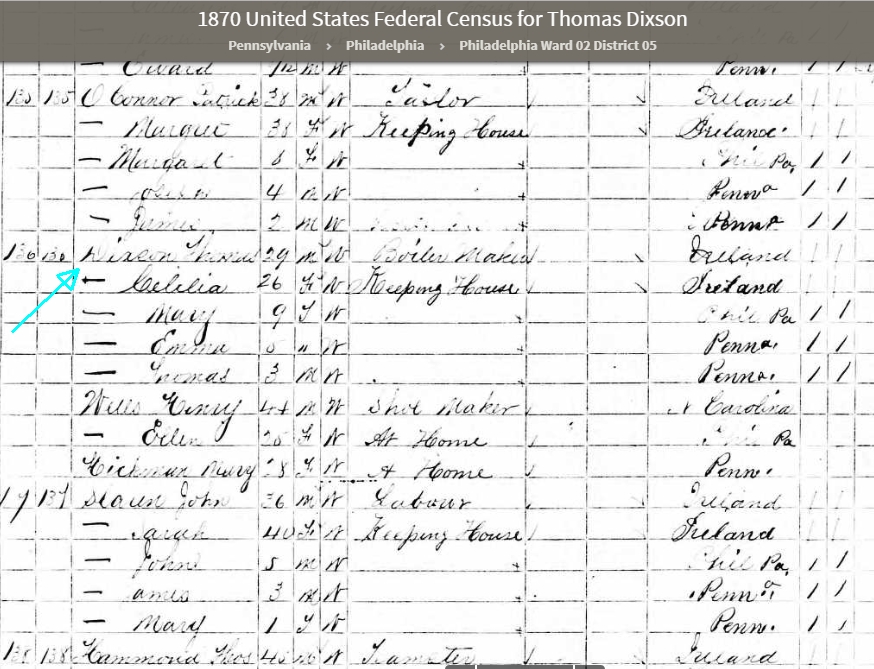 1870 United States Federal Census for Thomas Dixson
Pennsylvania > Philadelphia > Philadelphia Ward 02 District 05
Edward M W Penn.
135 135 O'Connor Patrick 38 M W Tailor Ireland 1 1
— Margret 38 F W Keeping House Ireland
— Margaret 6 F W Phil Pa, 1 1
— 4 W Penna 1 1
— James 2 M W Penna 1 1
136 136 Dixson Thomas 29 M W Boiler Maker Ireland 1 1
— Celilia 26 F W Keeping House Ireland 1 1
— Mary 9 F W Phil Pa 1 1
— Emma 5 " W Penna. 1 1
— Thomas 3 M W Penna. 1 1
Wells Henry 44 M W Shoe Maker N Carolina
— Ellen F W At Home Phil Pa
Hickman Mary 28 F W At Home Penn.
137 John 36 M W Labour Ireland 1 1
— Sarah 40 F W Keeping House Ireland 1 1
— John 5 M W Phil Pa, 1 1
— ames 3 M W Penna 1 1
— Mary 1 F W Penn. 1 1
138 138 Hammond Thos 45 M W Teamster Ireland 1 1